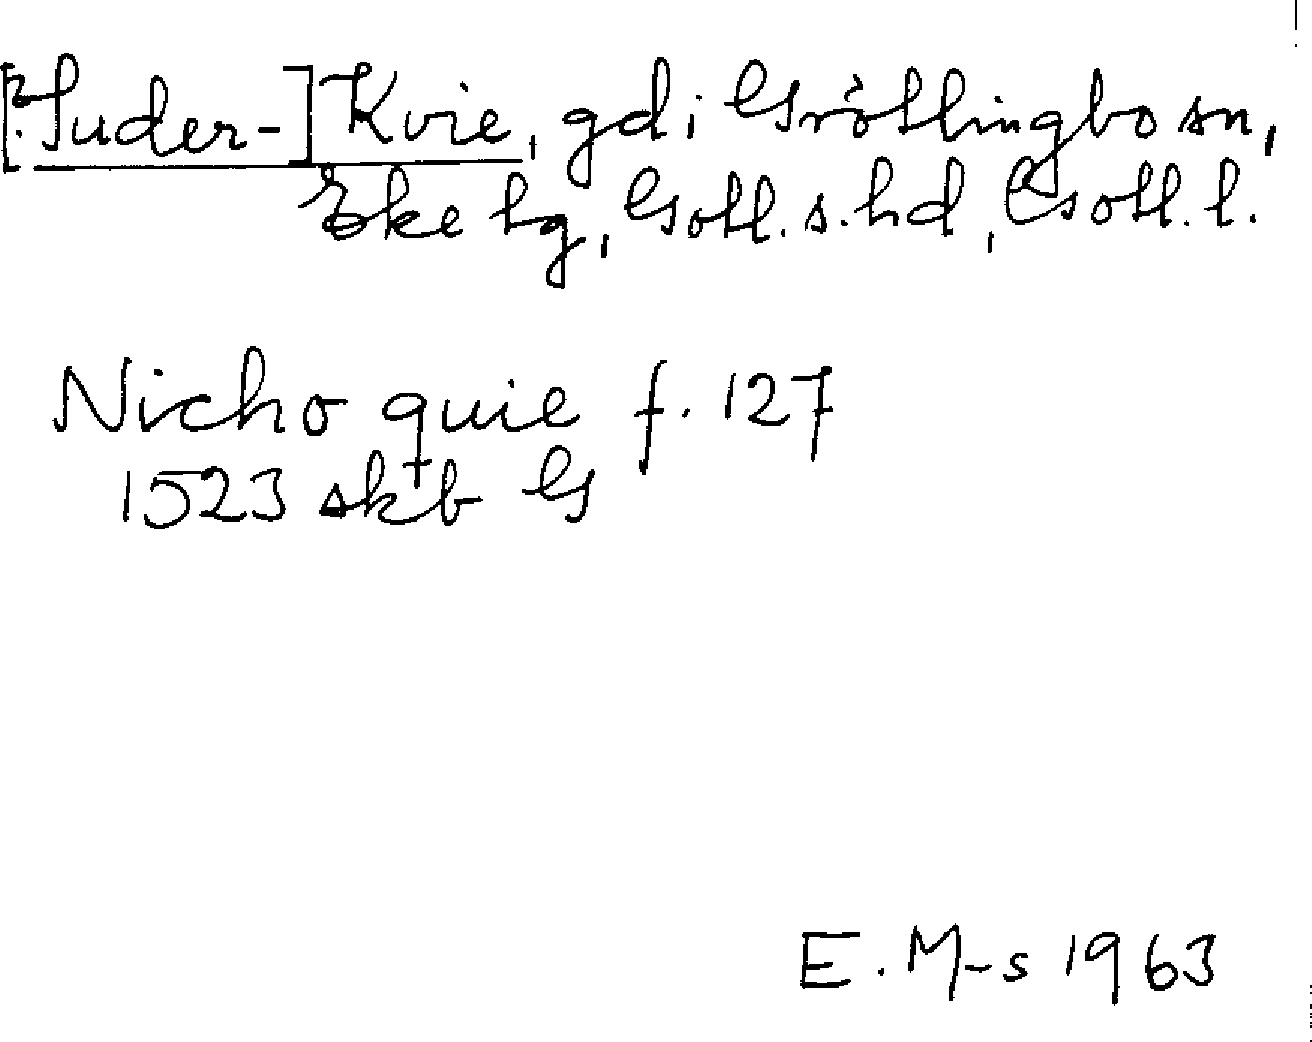 [?Suder-]Kvie, gd i Grötlingbo sn,
Eke tg, Gotl. s. hd, Gotl. l.
Nicho quie f. 127
1523 skb G
E. M-s 1963